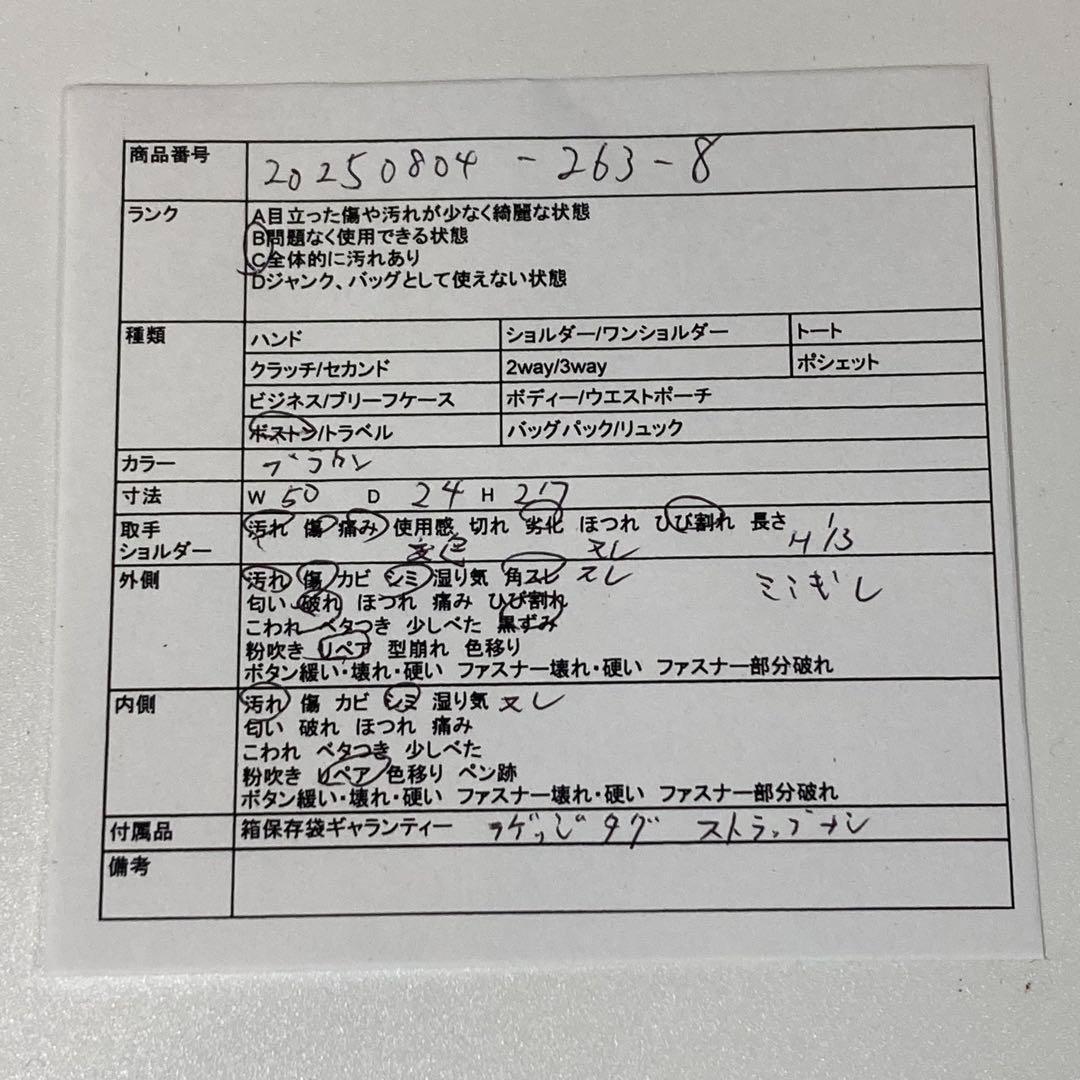 商品番号 20250804-263-8
ランク
A目立った傷や汚れが少なく綺麗な状態
B問題なく使用できる状態
C全体的に汚れあり
Dジャンク、バッグとして使えない状態
種類 ハンド ショルダー/ワンショルダー トート
クラッチ/セカンド 2way/3way ポシェット
ビジネス/ブリーフケース ボディー/ウエストポーチ
ボストン/トラベル バッグパック/リュック
カラー ブラウン
寸法 W 50 D 24 H 27
取手 汚れ 傷 痛み 使用感 切れ 劣化 ほつれ ひび割れ 長さ
ショルダー 変色 スレ H13
外側 汚れ 傷 カビ シミ 湿り気 角スレ スレ
匂い 破れ ほつれ 痛み ひび割れ
こわれ ベタつき 少しべた 黒ずみ
粉吹き リペア 型崩れ 色移り
ボタン緩い・壊れ・硬い ファスナー壊れ・硬い ファスナー部分破れ
内側 汚れ 傷 カビ シミ 湿り気 スレ
匂い 破れ ほつれ 痛み
こわれ ベタつき 少しべた
粉吹き リペア 色移り ペン跡
ボタン緩い・壊れ・硬い ファスナー壊れ・硬い ファスナー部分破れ
付属品 箱保存袋ギャランティー ラゲッジタグ ストラップナシ
備考